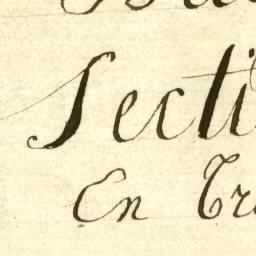 Secti
En Tr